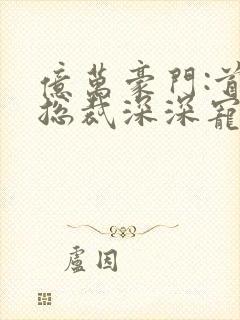 億萬豪門:首
總裁深深寵
盧因